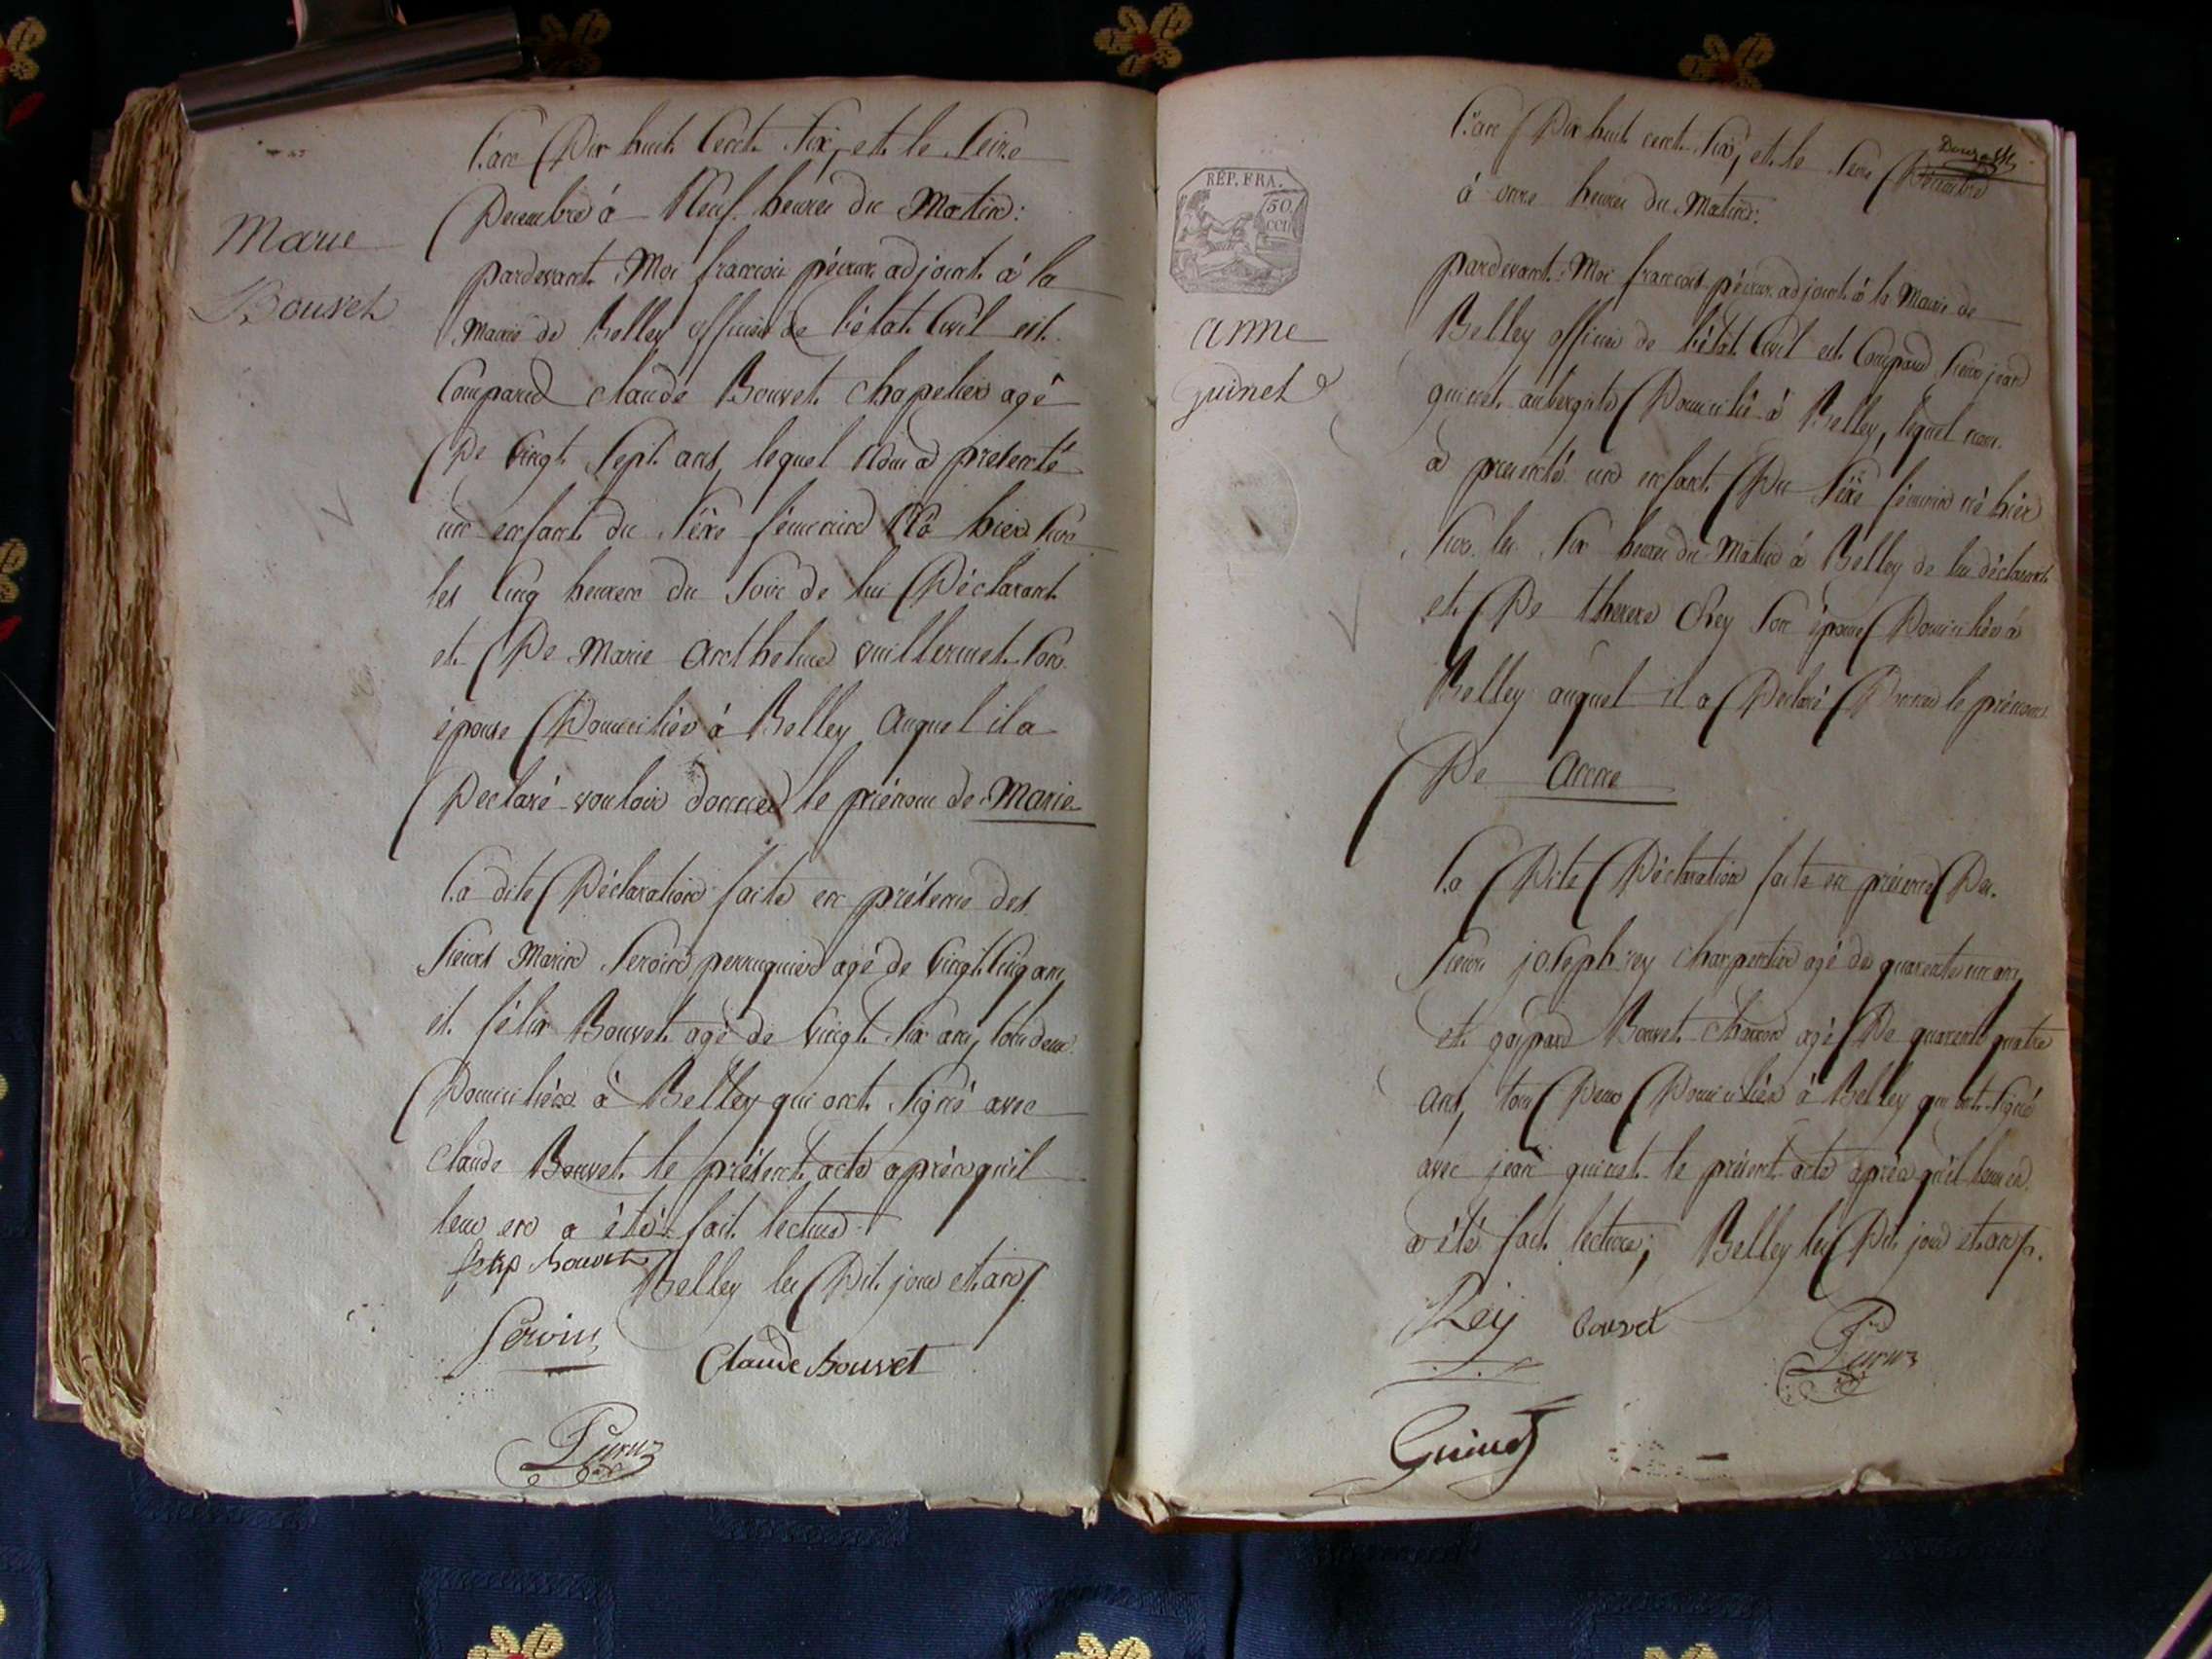 Marie
Bouvet
L'an Dix huit Cent Six, et le Seize
Decembre à Neuf heures du Matin:
pardevant Moi françois péruz adjoint à la
Mairie de Belley officier de l'état Civil est
Comparu claude Bouvet Chapelier agé
De Vingt Sept ans, lequel nous a presenté
un enfant du Séxe féminin Né hier Sur
les Cinq heures du Soir de lui Déclarant
et De Marie Anthelme Vuillermet Son
épouse Domiciliés à Belley auquel il a
Declaré vouloir donner le prénom de Marie
La dite Déclaration faite en présence des
Sieurs Marin Seroin perruquier agé de Vingt Cinq ans,
et félix Bouvet agé de Vingt Six ans, tous deux
Domiciliés à Belley qui ont Signé avec
Claude Bouvet le présent acte après qu'il
leur en a été fait lecture
Belley les Dit jour et an
Bouvet
Claude Bouvet
RÉP. FRA.
50
anne
guinet
L'an Dix huit cent Six, et le Seize Decembre
à onze heures du Matin:
pardevant Moi françois péruz adjoint à la Mairie de
Belley officier de l'état Civil est Comparu Sieur jean
guinet aubergiste Domicilié à Belley, lequel nous
a presenté un enfant Du Séxe féminin né hier
Sur les Six heures du Matin à Belley de lui déclarant
et De therese Rey Son épouse Domiciliés à
Belley auquel il a Declaré Donner le prénom
De anne
La Dite Déclaration faite en présence Des
Sieurs joseph rey Charpentier agé de quarante un ans,
et gaspard Bouvet Charron agé De quarente quatre
ans, tous Deux Domiciliés à Belley qui ont Signé
avec jean guinet le présent acte après qu'il leur en
a été fait lecture; Belley les Dit jour et an.
Rey Bouvet
Guinet